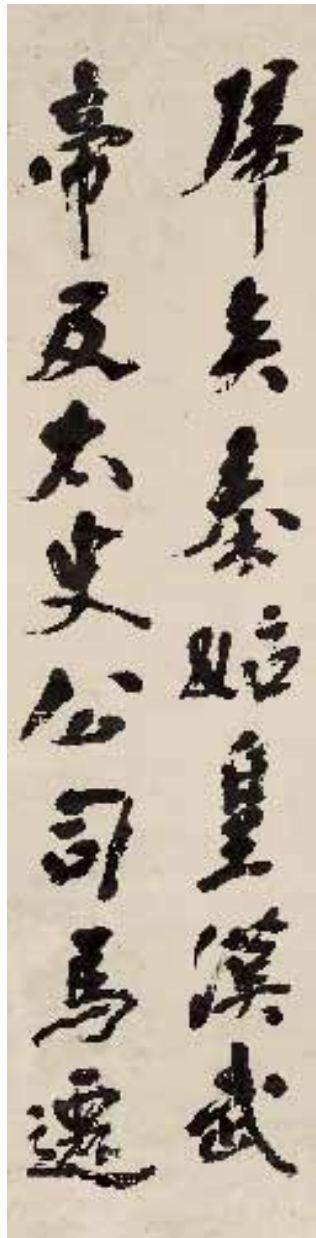 歸矣秦始皇漢武
帝及太史公司馬遷